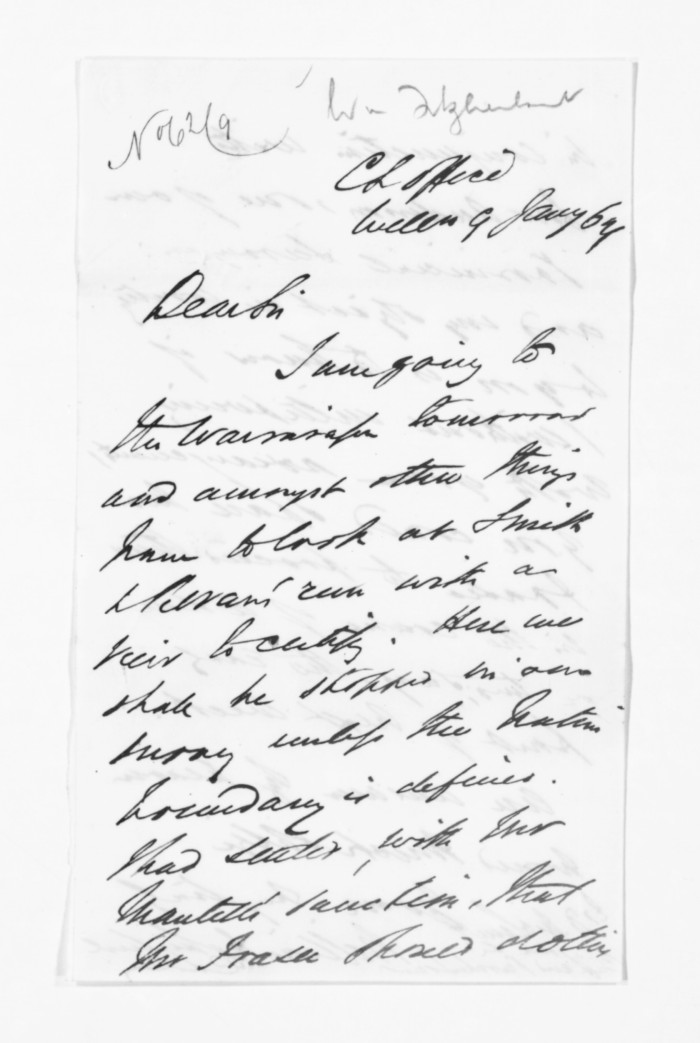 No 62/9
Wm Fitzherbert
CL Office
Welln 9 Jany 64
Dear Sir
I am going to
the Wairarapa tomorrow
and amongst other things
have to look at Smith
& Revans' run with a
view to certify. Here we
shall be stopped in our
survey unless the Native
boundary is defined.
I had settled, with Mr
Mantell's sanction, that
Mr Fraser should do this